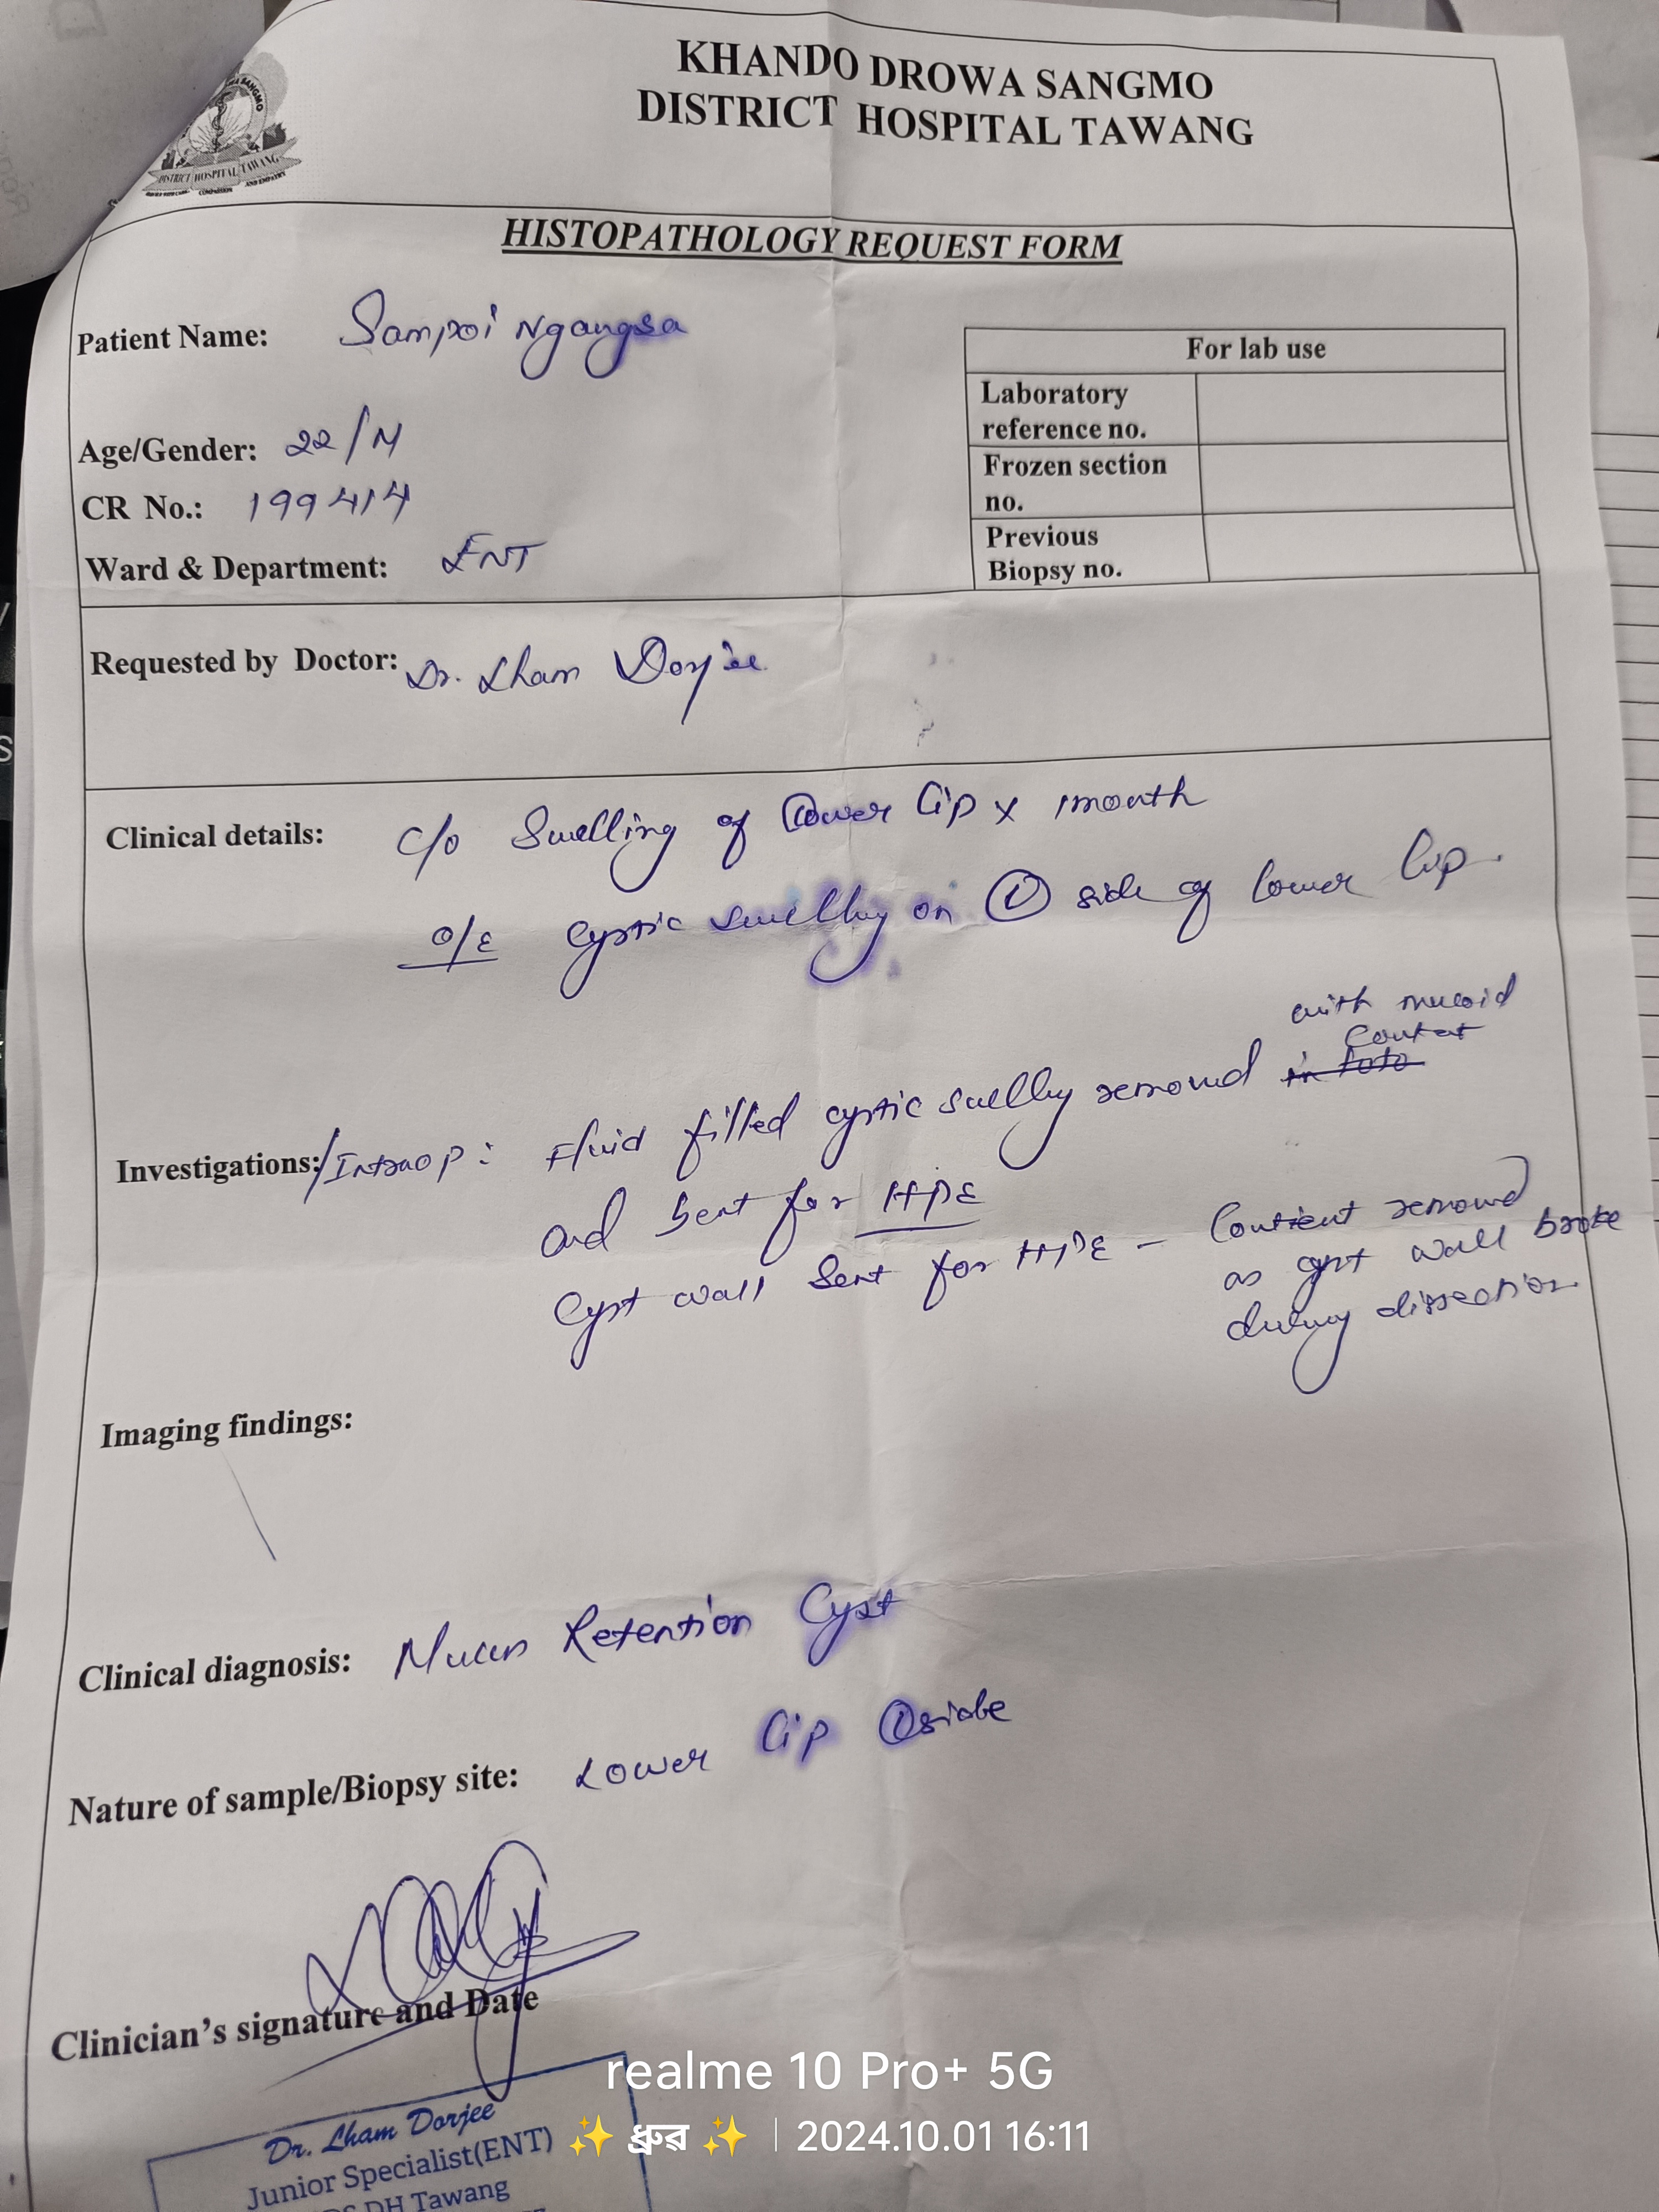 KHANDO DROWA SANGMO
DISTRICT HOSPITAL TAWANG
DISTRICT HOSPITAL TAWANG
COMPASSION AND EMPATHY
HISTOPATHOLOGY REQUEST FORM
Patient Name: Sampoi Ngangsa
Age/Gender: 22/M
CR No.: 199414
Ward & Department: ENT
For lab use
Laboratory reference no.
Frozen section no.
Previous Biopsy no.
Requested by Doctor: Dr. Lham Dorjee
Clinical details: c/o Swelling of Lower lip x 1month
O/E Cystic swelling on Ⓛ side of lower lip.
with mucoid
Content
Investigations:/Intraop: Fluid filled cystic swelling removed in toto
and sent for HPE
Cyst wall sent for HPE – Content removed
as cyst wall broke
during dissection
Imaging findings:
Clinical diagnosis: Mucus Retention Cyst
Nature of sample/Biopsy site: Lower lip Ⓛ side
Clinician's signature and Date
Dr. Lham Dorjee
Junior Specialist(ENT)
DH Tawang
realme 10 Pro+ 5G
✨ ধ্রুৱ ✨ | 2024.10.01 16:11